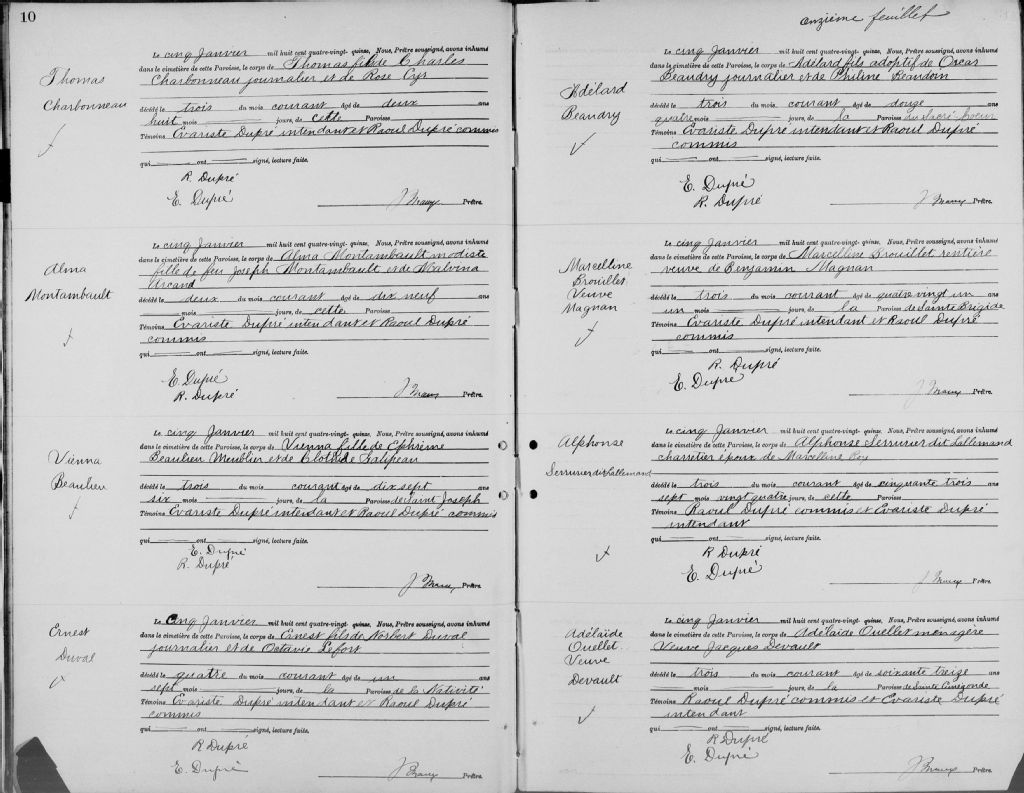 10
Thomas
Charbonneau
Le cinq Janvier mil huit cent quatre-vingt-quinze, Nous, Prêtre soussigné, avons inhumé
dans le cimetière de cette Paroisse, le corps de Thomas fils de Charles
Charbonneau journalier et de Rose Cyr
décédé le trois du mois courant âgé de deux ans
huit mois jours, de cette
Témoins Evariste Dupré intendant et Raoul Dupré commis
qui ont signé, lecture faite.
R. Dupré
E. Dupré
Prêtre.
Alma
Montambault
Le cinq Janvier mil huit cent quatre-vingt-quinze, Nous, Prêtre soussigné, avons inhumé
dans le cimetière de cette Paroisse, le corps de Alma Montambault modiste
fille de feu Joseph Montambault et de Malvina
Arcand
décédé le deux du mois courant âgé de dix neuf ans
mois jours, de cette Paroisse
Témoins Evariste Dupré intendant et Raoul Dupré
commis
qui ont signé, lecture faite.
E. Dupré
R. Dupré
Prêtre.
Vienna
Beaulieu
Le cinq Janvier mil huit cent quatre-vingt-quinze, Nous, Prêtre soussigné, avons inhumé
dans le cimetière de cette Paroisse, le corps de Vienna fille de Ephrème
Beaulieu Meublier et de Clotilde Galipeau
décédé le trois du mois courant âgé de dix sept ans
six mois jours, de la Paroisse de Saint Joseph
Témoins Evariste Dupré intendant et Raoul Dupré commis
qui ont signé, lecture faite.
E. Dupré
R. Dupré
Prêtre.
Ernest
Duval
Le Cinq Janvier mil huit cent quatre-vingt-quinze, Nous, Prêtre soussigné, avons inhumé
dans le cimetière de cette Paroisse, le corps de Ernest fils de Norbert Duval
journalier et de Octavie Lefort
décédé le quatre du mois courant âgé de un an
sept mois jours, de la Paroisse de la Nativité
Témoins Evariste Dupré intendant et Raoul Dupré
commis
qui ont signé, lecture faite.
R Dupré
E. Dupré
Prêtre.
onzième feuillet
Adélard
Beaudry
Le cinq Janvier mil huit cent quatre-vingt-quinze, Nous, Prêtre soussigné, avons inhumé
dans le cimetière de cette Paroisse, le corps de Adélard fils adoptif de Oscar
Beaudry journalier et de Philine Beaudoin
décédé le trois du mois courant âgé de douze ans
quatre mois jours, de la Paroisse du Sacré Coeur
Témoins Evariste Dupré intendant et Raoul Dupré
commis
qui ont signé, lecture faite.
E. Dupré
R. Dupré
Prêtre.
Marcelline
Brouillet
Veuve
Magnan
Le cinq Janvier mil huit cent quatre-vingt-quinze, Nous, Prêtre soussigné, avons inhumé
dans le cimetière de cette Paroisse, le corps de Marcelline Brouillet rentière
veuve de Benjamin Magnan
décédé le trois du mois courant âgé de quatre vingt un ans
un mois jours, de la Paroisse de Sainte Brigide
Témoins Evariste Dupré intendant et Raoul Dupré
commis
qui ont signé, lecture faite.
R. Dupré
E. Dupré
Prêtre.
Alphonse
Serrurier dit Lallemand
Le cinq Janvier mil huit cent quatre-vingt-quinze, Nous, Prêtre soussigné, avons inhumé
dans le cimetière de cette Paroisse, le corps de Alphonse Serrurier dit Lallemand
charretier époux de Marcelline Roy
décédé le trois du mois courant âgé de cinquante trois ans
sept mois vingt quatre jours, de cette Paroisse
Témoins Raoul Dupré commis et Evariste Dupré
intendant
qui ont signé, lecture faite.
R Dupré
E. Dupré
Prêtre.
Adélaïde
Ouellet
Veuve
Devault
Le cinq Janvier mil huit cent quatre-vingt-quinze, Nous, Prêtre soussigné, avons inhumé
dans le cimetière de cette Paroisse, le corps de Adélaïde Ouellet ménagère
Veuve Jacques Devault
décédé le trois du mois courant âgé de soixante treize ans
mois jours, de la Paroisse de Sainte Cunégonde
Témoins Raoul Dupré commis et Evariste Dupré
intendant
qui ont signé, lecture faite.
R Dupré
E. Dupré
Prêtre.